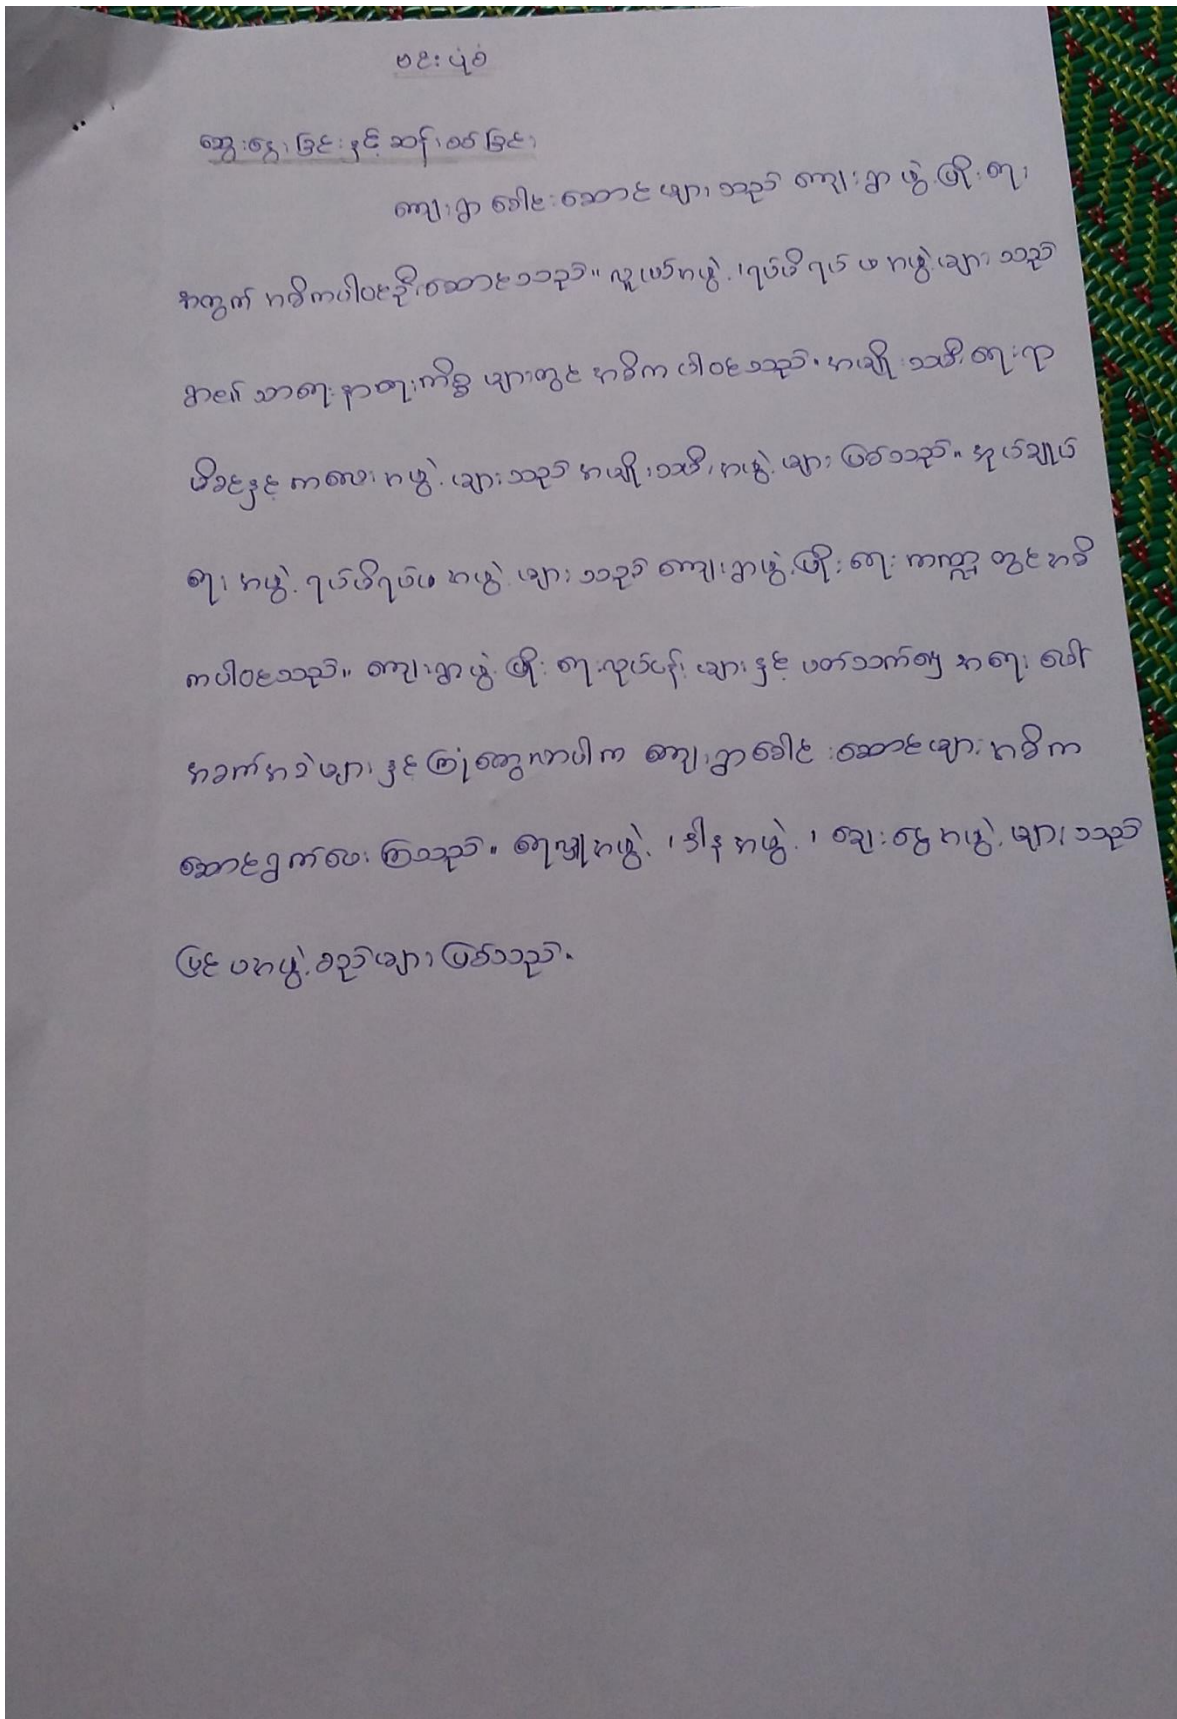 ဗင်းပုံစံ
ဆွေးနွေးခြင်းနှင့် ဆန်းစစ်ခြင်း
ကျေးရွာ ခေါင်းဆောင်များသည် ကျေးရွာ ဖွံ့ဖြိုးရေး
အတွက် အဓိကပါဝင်ဦးဆောင်သည်။ လူငယ်အဖွဲ့၊ ရပ်မိရပ်ဖအဖွဲ့များသည်
ရွာ၏ သာရေးနာရေးကိစ္စများတွင် အဓိက ပါဝင်သည်။ အမျိုးသမီးရေးရာ
မိခင်နှင့် ကလေးအဖွဲ့များသည် အမျိုးသမီးအဖွဲ့များ ဖြစ်သည်။ အုပ်ချုပ်
ရေးအဖွဲ့ ရပ်မိရပ်ဖအဖွဲ့များသည် ကျေးရွာဖွံ့ဖြိုးရေး ကဏ္ဍတွင် အဓိ
ကပါဝင်သည်။ ကျေးရွာဖွံ့ဖြိုးရေးလုပ်ငန်းများနှင့် ပတ်သက်၍ အရေးပေါ်
အခက်အခဲများနှင့် ကြုံတွေ့လာပါက ကျေးရွာခေါင်းဆောင်များ အဓိက
ဆောင်ရွက်ပေးကြသည်။ ရေလှူအဖွဲ့၊ ဒါနအဖွဲ့၊ ချေးငွေအဖွဲ့များသည်
ပြင်ပအဖွဲ့စည်းများ ဖြစ်သည်။